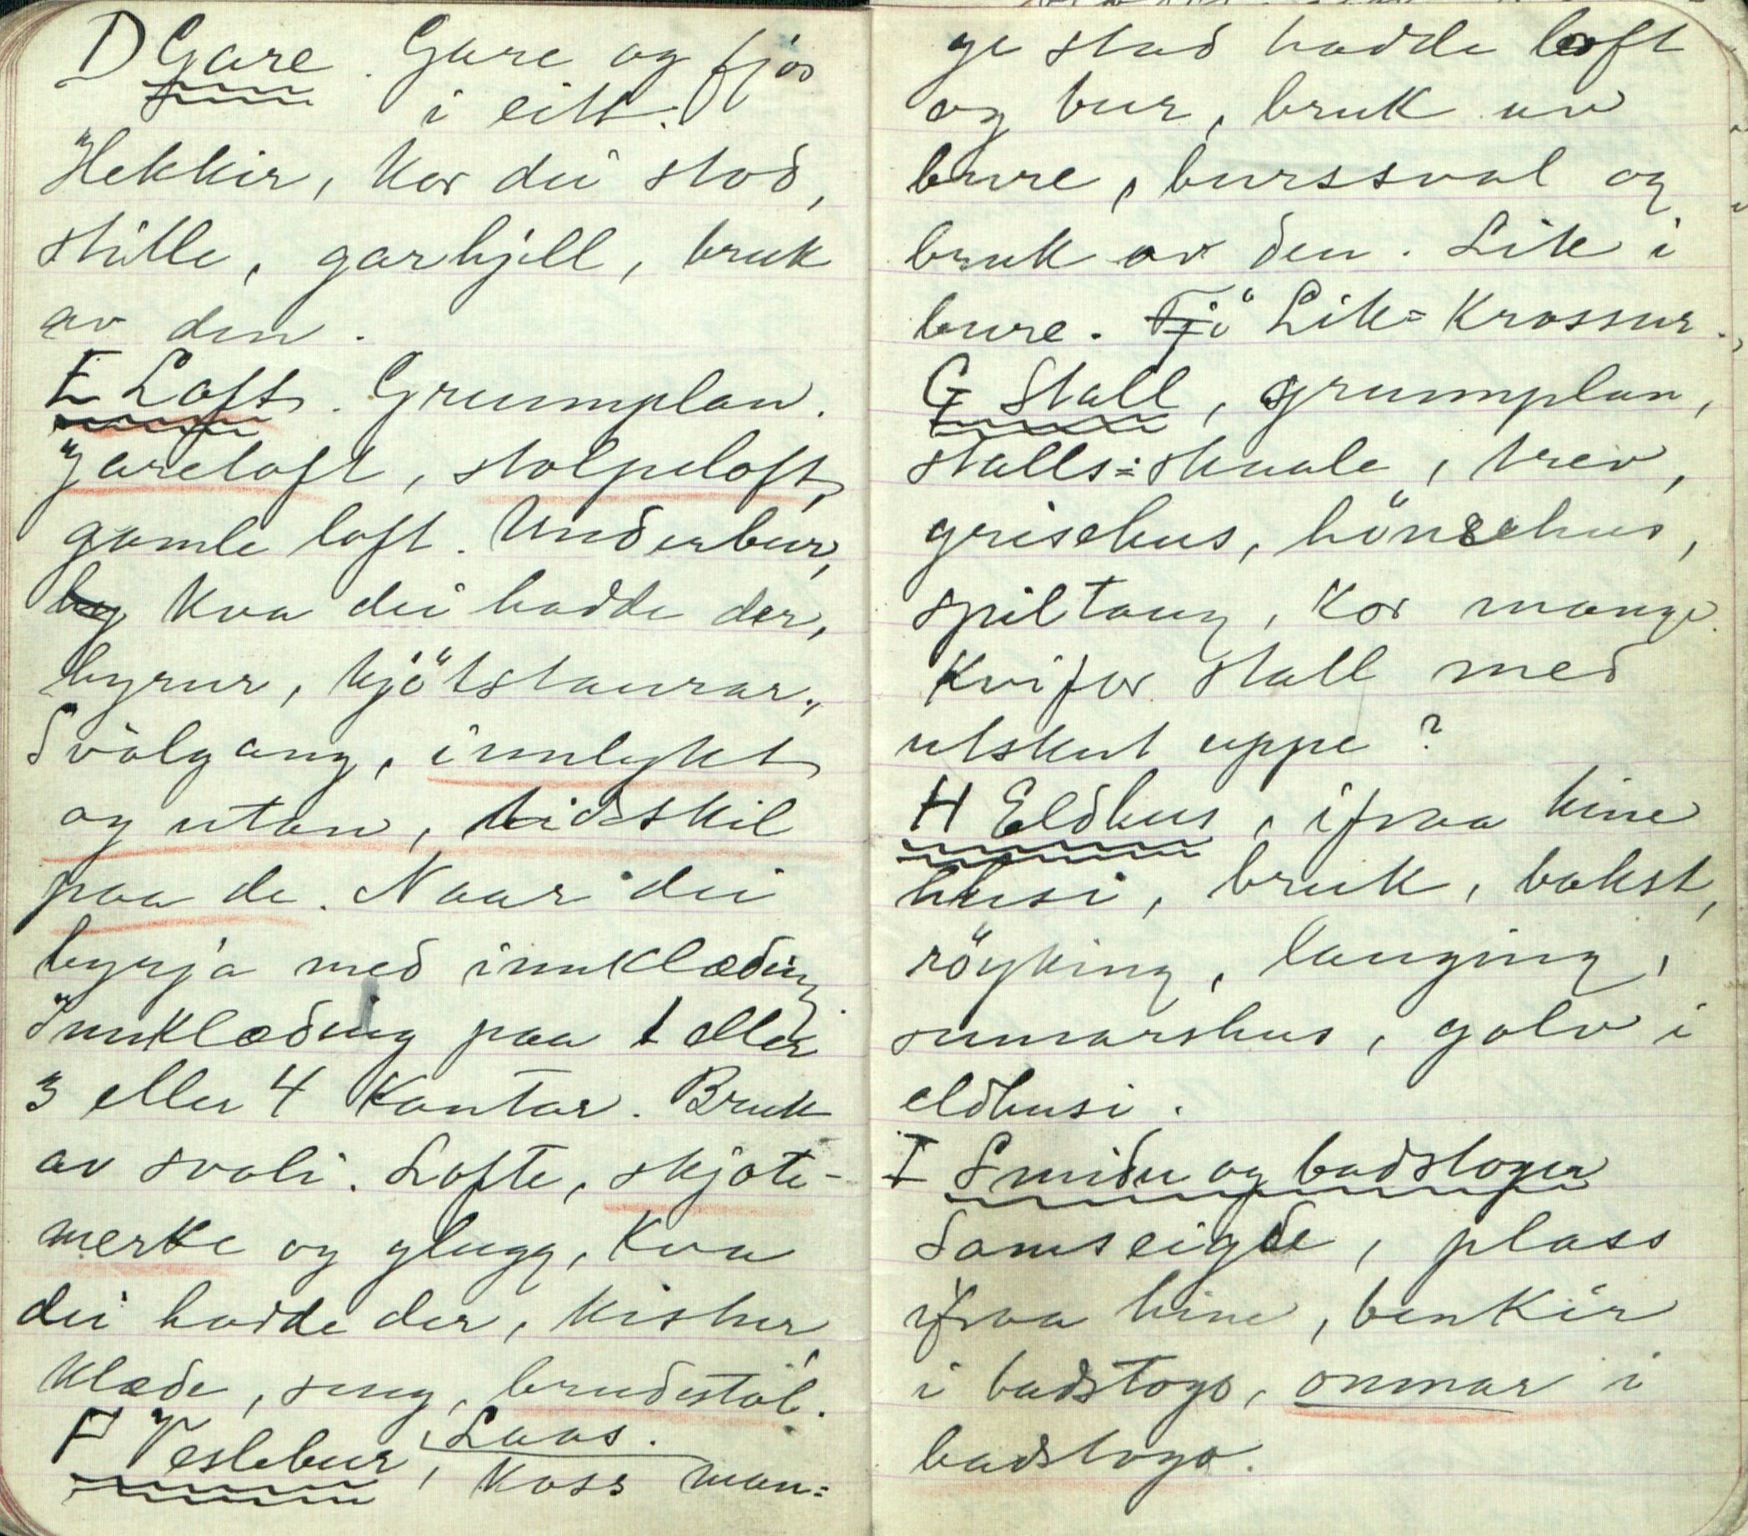 D Gare. Gare og fjös
i eitt.
Hekkir, kor dei stod,
stille, garhjell, bruk
av den.
E Loft. Grunnplan.
Jareloft, stolpeloft,
gamle loft. Underbur,
Kva dei hadde der,
byrur, kjötstaurar,
Svolgang, innlykt
og utan, tidskil
paa de. Naar dei
byrja med innklæding
Innklæding paa 1 eller
3 eller 4 kantar. Bruk
av svali. Lofte, skjote-
merke og glugg, Kva
dei hadde der, kistur,
klæde, seng, brudestol.
Laas.
F Veslebur, Koss man=
ge stad hadde loft
og bur, bruk av
bure, burssval og
bruk av den. Lik i
bure. Lik=Krossur.
G Stall, grunnplan,
stalls=skaale, trev,
grisehus, hönsehus,
spiltaug, Kor mange
Kvifor stall med
utskut uppe?
H Eldhus, ifraa hine
husi, bruk, bakst,
röyking, lauging,
sumarshus, golv i
eldhusi.
I Smidu og badstogur
Samseigde, plass
ifraa hine, benkir
i badstogo, onnar i
badstogo.